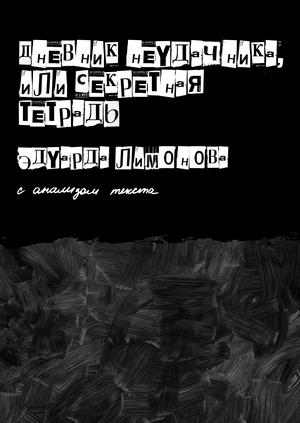 Дневник неудачника,
или секретная
тетрадь
Эдуарда Лимонова
с анализом текста